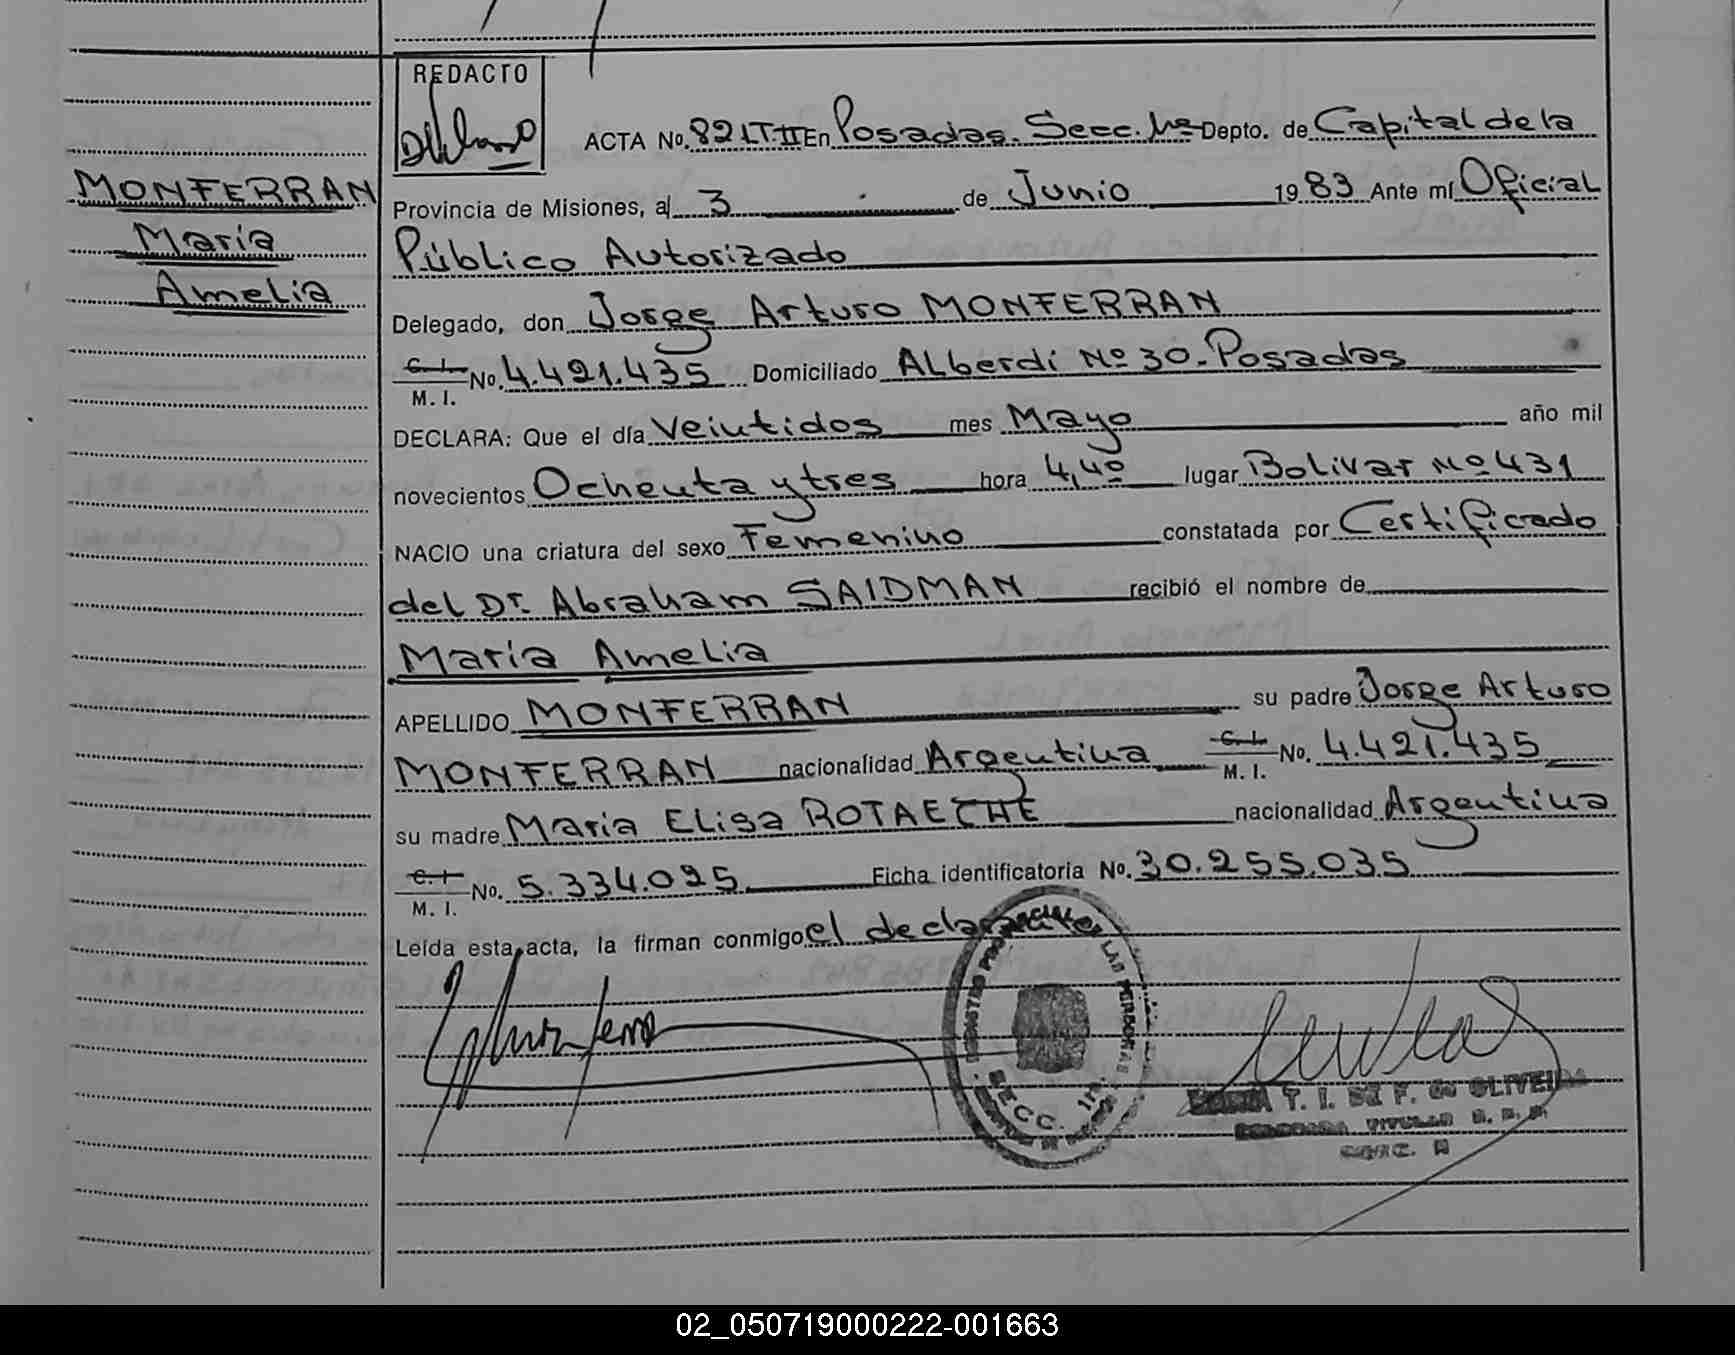 REDACTO
ACTA No. 821 T-II En Posadas. Secc. 1ra Depto. de Capital de la
MONFERRAN
María
Amelia
Provincia de Misiones, al 3 de Junio 1983 Ante mí Oficial
Público Autorizado
Delegado, don Jorge Arturo MONFERRAN
C. I.
M. I. No. 4.421.435 Domiciliado Alberdi Nº 30. Posadas
DECLARA: Que el día Veintidos mes Mayo año mil
novecientos Ochenta y tres hora 4,40 lugar Bolivar Nº 431
NACIO una criatura del sexo Femenino constatada por Certificado
del Dr. Abraham SAIDMAN recibió el nombre de
María Amelia
APELLIDO MONFERRAN su padre Jorge Arturo
MONFERRAN nacionalidad Argentina C. I. M. I. No. 4.421.435
su madre María Elisa ROTAECHE nacionalidad Argentina
C. I.
M. I. No. 5.334.095 Ficha identificatoria No. 30.255.035
Leída esta acta, la firman conmigo el declarante
LAS PERSONAS
SECC. 1ra.
T. I. DE F. de OLIVEIRA
TITULAR
02_050719000222-001663